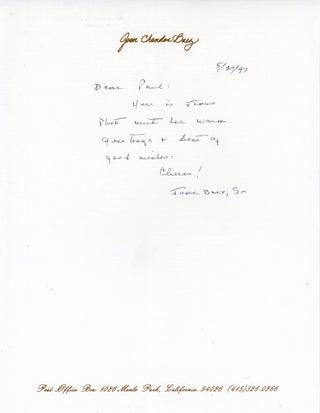 Joan Chandos Baez
5/20/97
Dear Paul:
Here is Joan's
Photo with her warm
greetings & best of
good wishes.
Cheers!
Joan Baez, Sr
Post Office Box 1026 Menlo Park, California 94026 (415) 328-0266